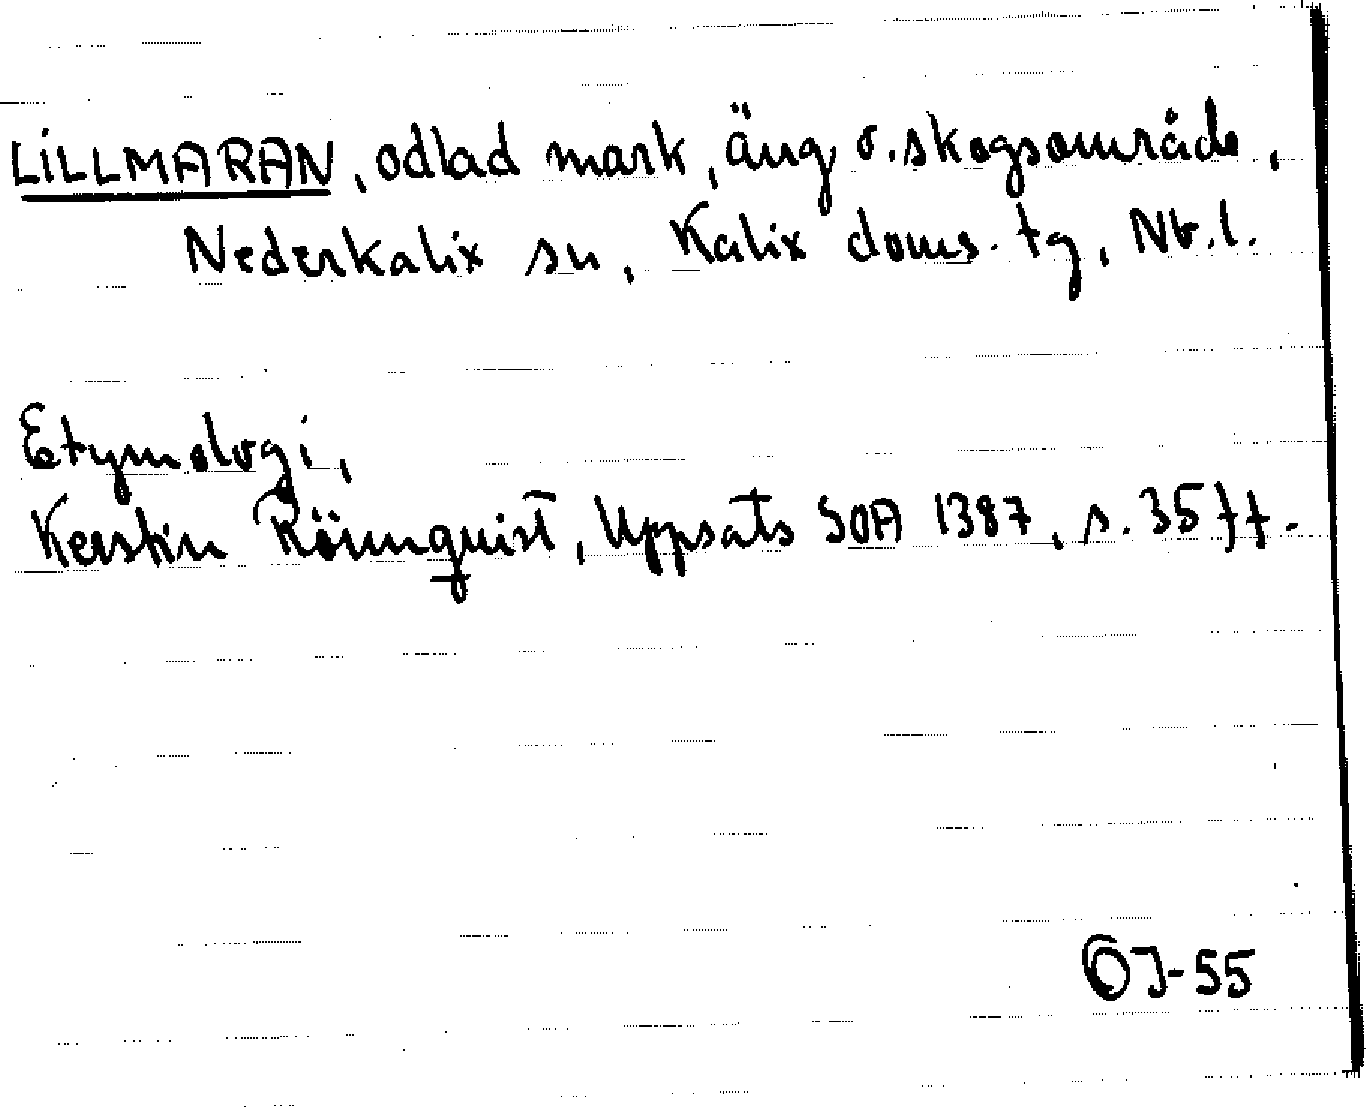 LILLMARAN, odlad mark, äng o. skogsområde,
Nederkalix sn, Kalix doms. tg, Nb.l.
Etymologi,
Kerstin Rönnquist, Uppsats SOA 1387, s. 35 ff.
OJ-55